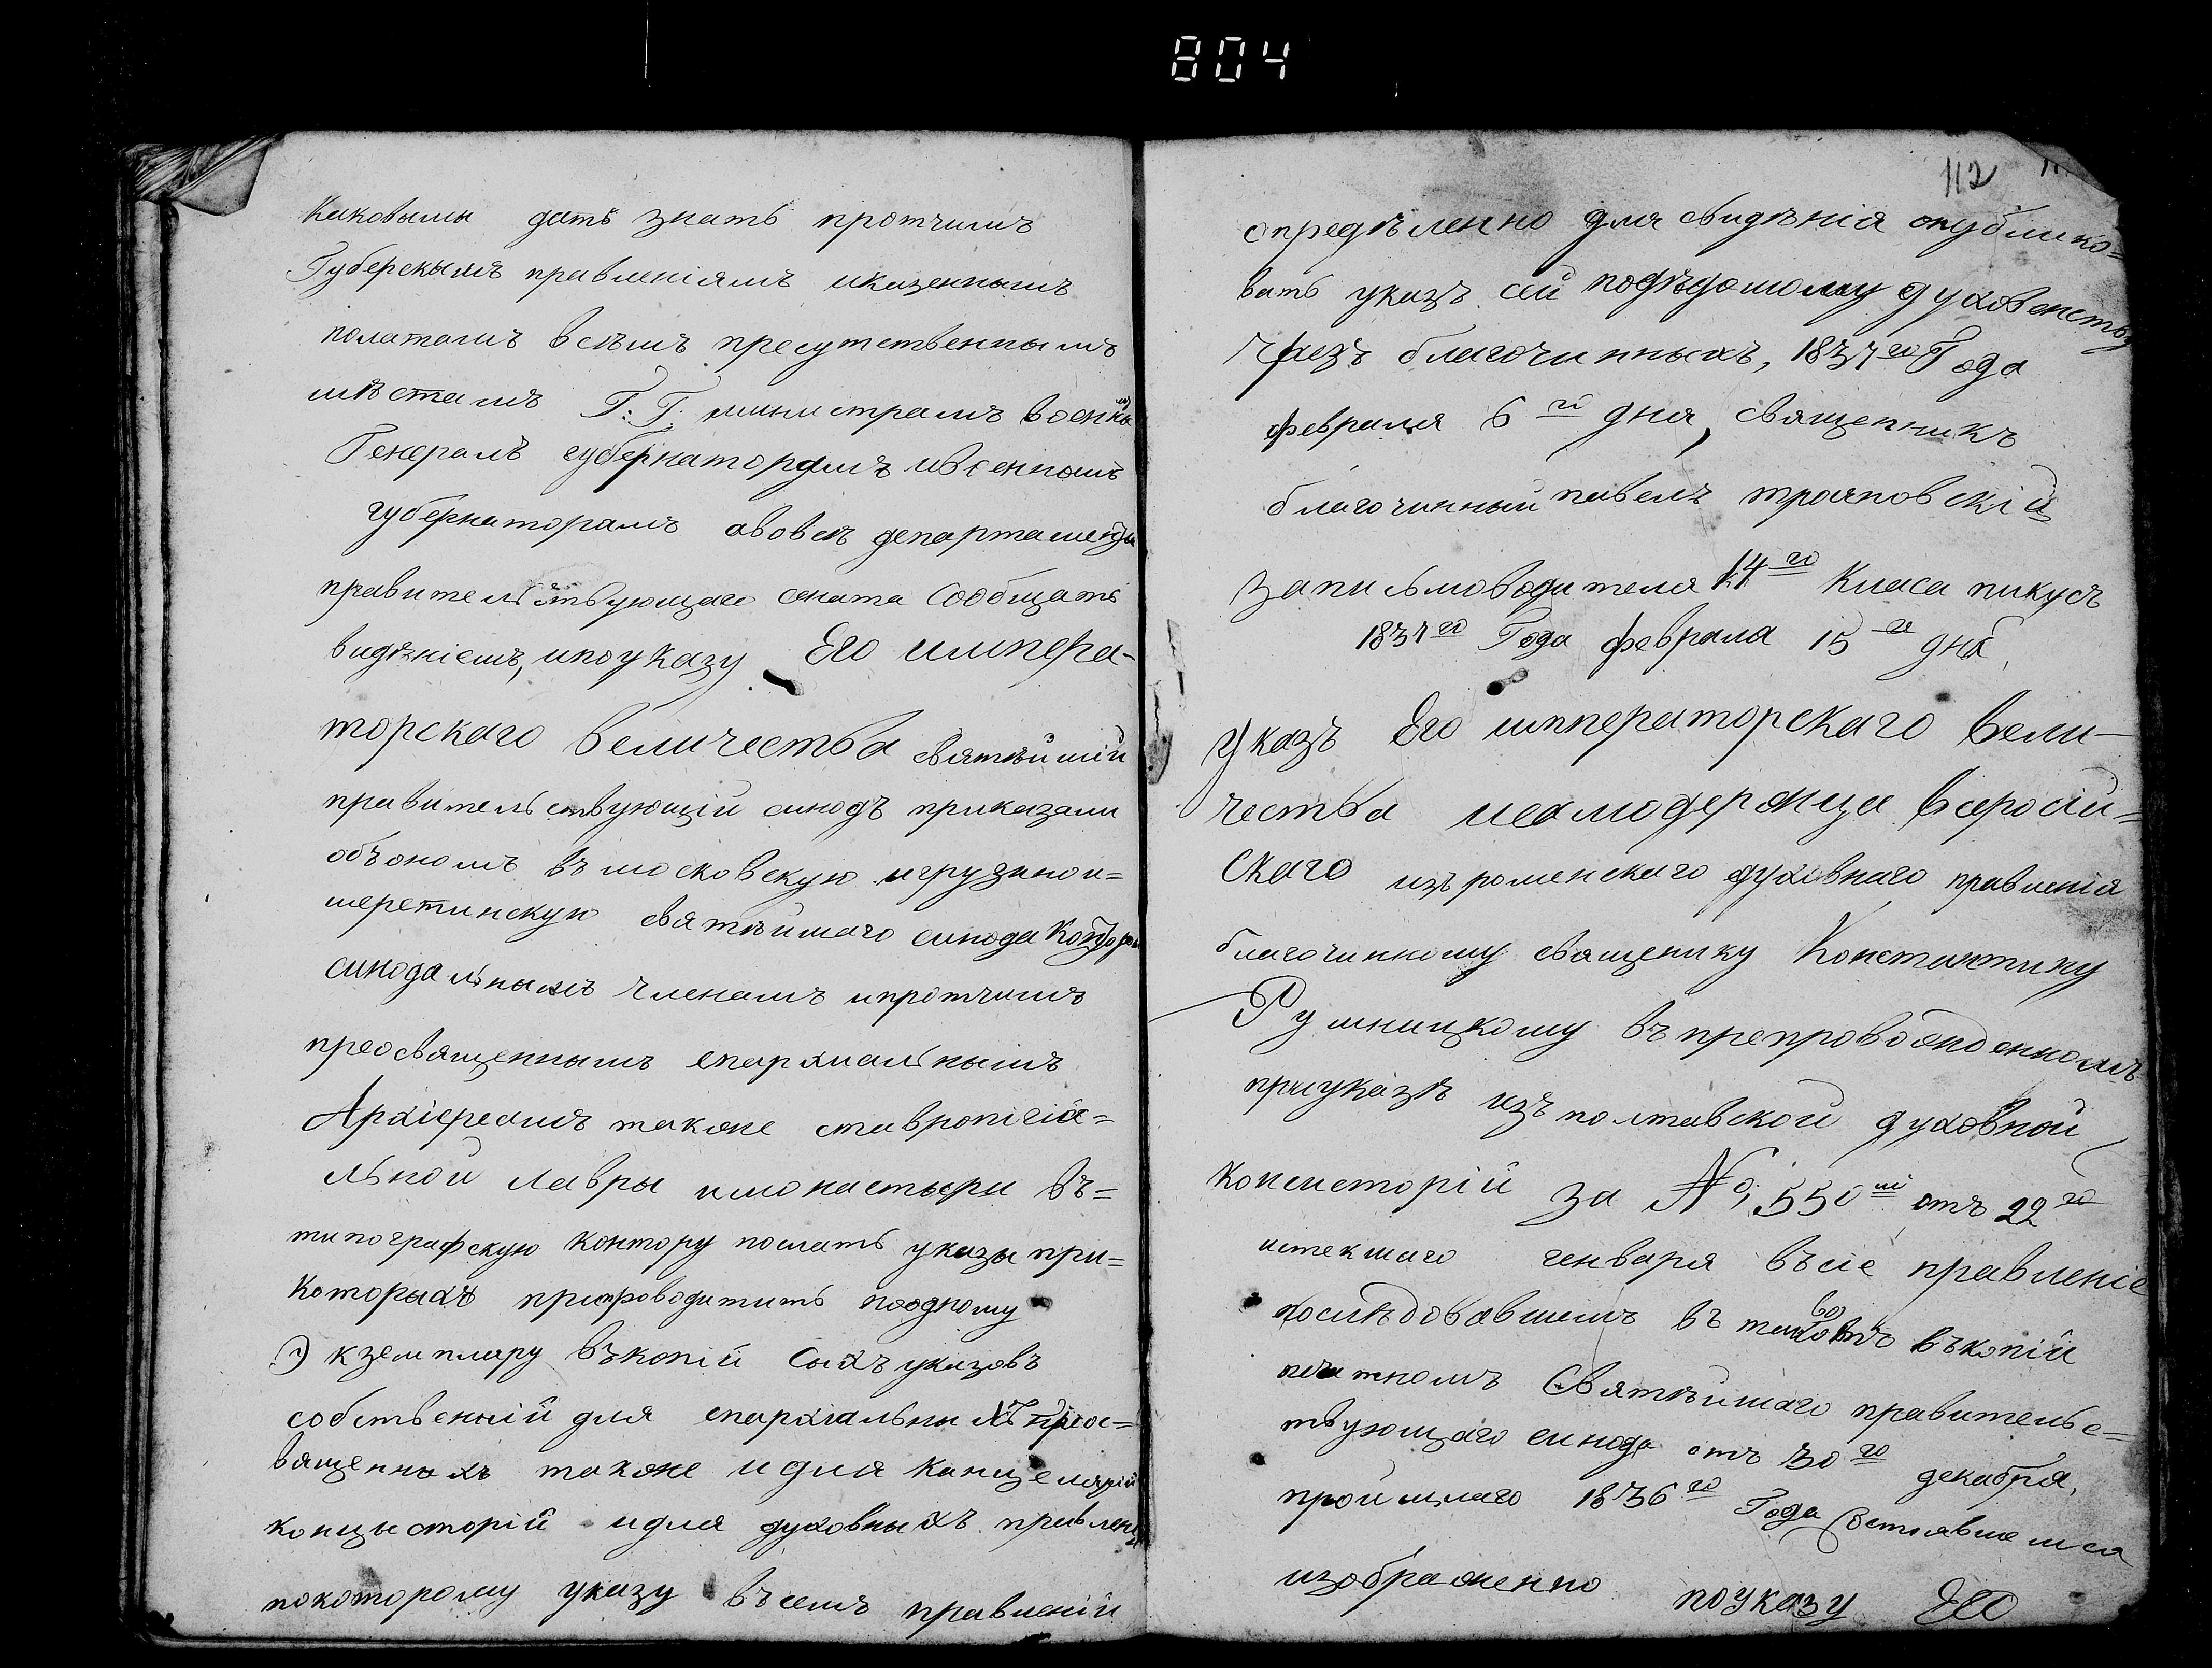 804
каковыми дать знать протчимъ
Губерскымъ правленіямъ иказеннымъ
полатамъ всѣмъ пресутственнымъ
мѣстамъ Г: Г. министрамъ военны
Генералъ губернаторамъ ивоеннымъ
губернаторамъ авовсѣ департаменты
правительствующаго сената сообщать
видѣніемъ, ипоуказу Его импера-
торскаго величества святѣйшій
правительствующій синодъ приказали
объономъ въ московскую игрузинои=
меретинскую святѣйшаго синода контору
синодальнымъ членамъ ипротчимъ
преосвященнымъ епархиальнымъ
Архіереамъ также ставропігіа=
льной лавры имонастыри въ=
типографскую контору послать указы при=
которыхъ препроводитить поодному
Экземпляру въкопій сихъ указовъ
собственый для епархіальныхъ преос=
вященныхъ также идля канцелярій
концысторій идля духовныхъ правленій
покоторому указу въсемъ правленій
112
опредѣленно для свидѣнія опублико=
вать указъ сей подѣдомому духовенству
чрезъ благочинныхъ, 1837го Года
февраля 6го дня, священникъ
благочинный павелъ трояновскій
Записьмоводителя 14го Класа пикусъ
1837го Года февраля 15го дня,
Указъ Его императорскаго вели-
чества исамодержца всеросий=
скаго изъроменскаго духовнаго правленія
благочинному священику Константину
Румницкому въпрепровожденномъ
приуказѣ изъ полтавской духовной
консисторій за №, 550м отъ 22го
истекшаго генваря въсіе правленіе
послѣдовавшемъ въ таковомъ въкопій
печатномъ Святѣйшаго правительс=
твующаго синода отъ 30го декабря,
пройшлаго 1836го Года состоявшемся
изображенно поуказу ЕГО